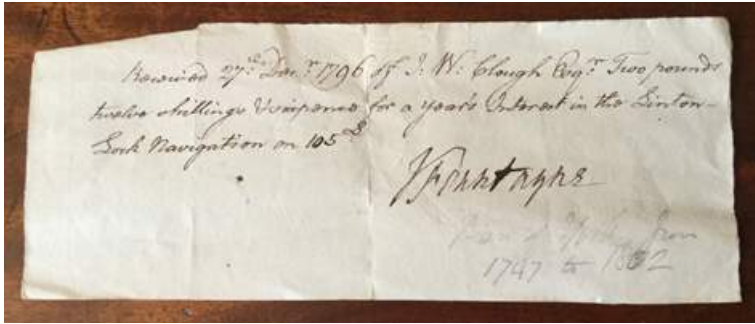 Received 27th. Decr. 1796 of J. W. Clough Esqr. Two pounds
twelve shillings & sixpence for a year's Interest in the Linton-
Lock Navigation on 105£
J Fountayne
Dean of York from
1747 to 1802